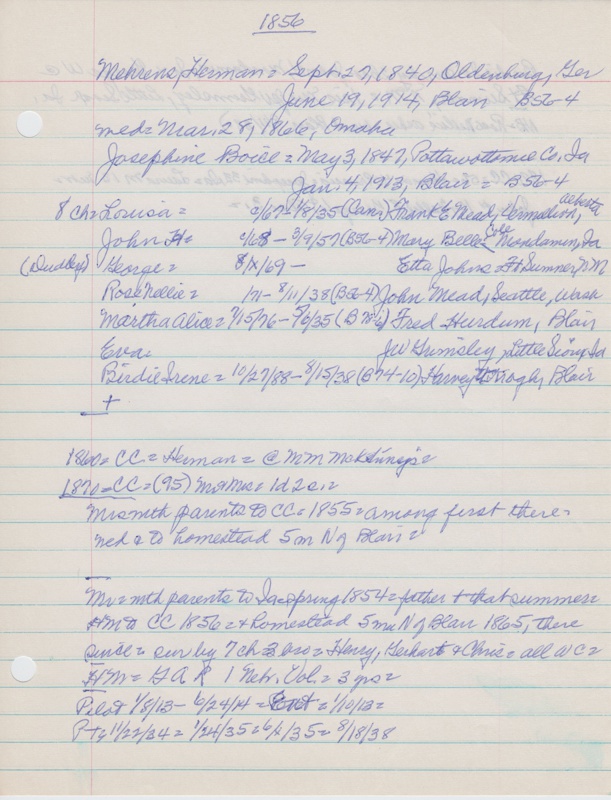 1856
Mehrens, Herman = Sept. 27, 1840, Oldenburg, Ger
June 19, 1914, Blair B56-4
med = Mar. 28, 1866, Omaha
Josephine Boice = May 3, 1847, Pottawottomie Co., Ia
Jan. 4, 1913, Blair = B56-4
8 ch = Louisa = c/67 - 1/8/35 (Can.) Frank E Mead, Vermalion, Alberta
John H = c/68 - 3/9/57 (B56-4) Mary Belle Cole Mondamin, Ia
George = 8/x/69 - Etta Johns = Ft Sumner, N M
Rose Nellie = /71 - 8/11/38 (B56-4) John Mead, Seattle, Wash
Martha Alice = 7/15/76 - 5/6/35 Fred Hurdum, Blair
Eva = JW Grimsley, Little Sioux, Ia
Birdie Irene = 10/27/88 - 8/15/38 (B74-10) Harvey Blair
+
1860 = CC = Herman = @ M M
1870 = CC = (95) Mr & Mrs = 1d 2s =
Mrs = mth parents to CC = 1855 = among first there =
med & to homestead 5m N of Blair =
Mr = mth parents to Ia = spring 1854 = father + that summer =
HM to CC 1856 = + homestead 5m N of Blair 1865, there
since = sur by 7 ch 3 bro = Henry, Gerhart & Chris = all W C =
HM = G A R 1 Nebr. Vol. = 3 yrs =
Pilot 1/8/13 - 6/24/14 = Ent = 1/10/13 =
11/22/34 = 1/24/35 = 8/18/38